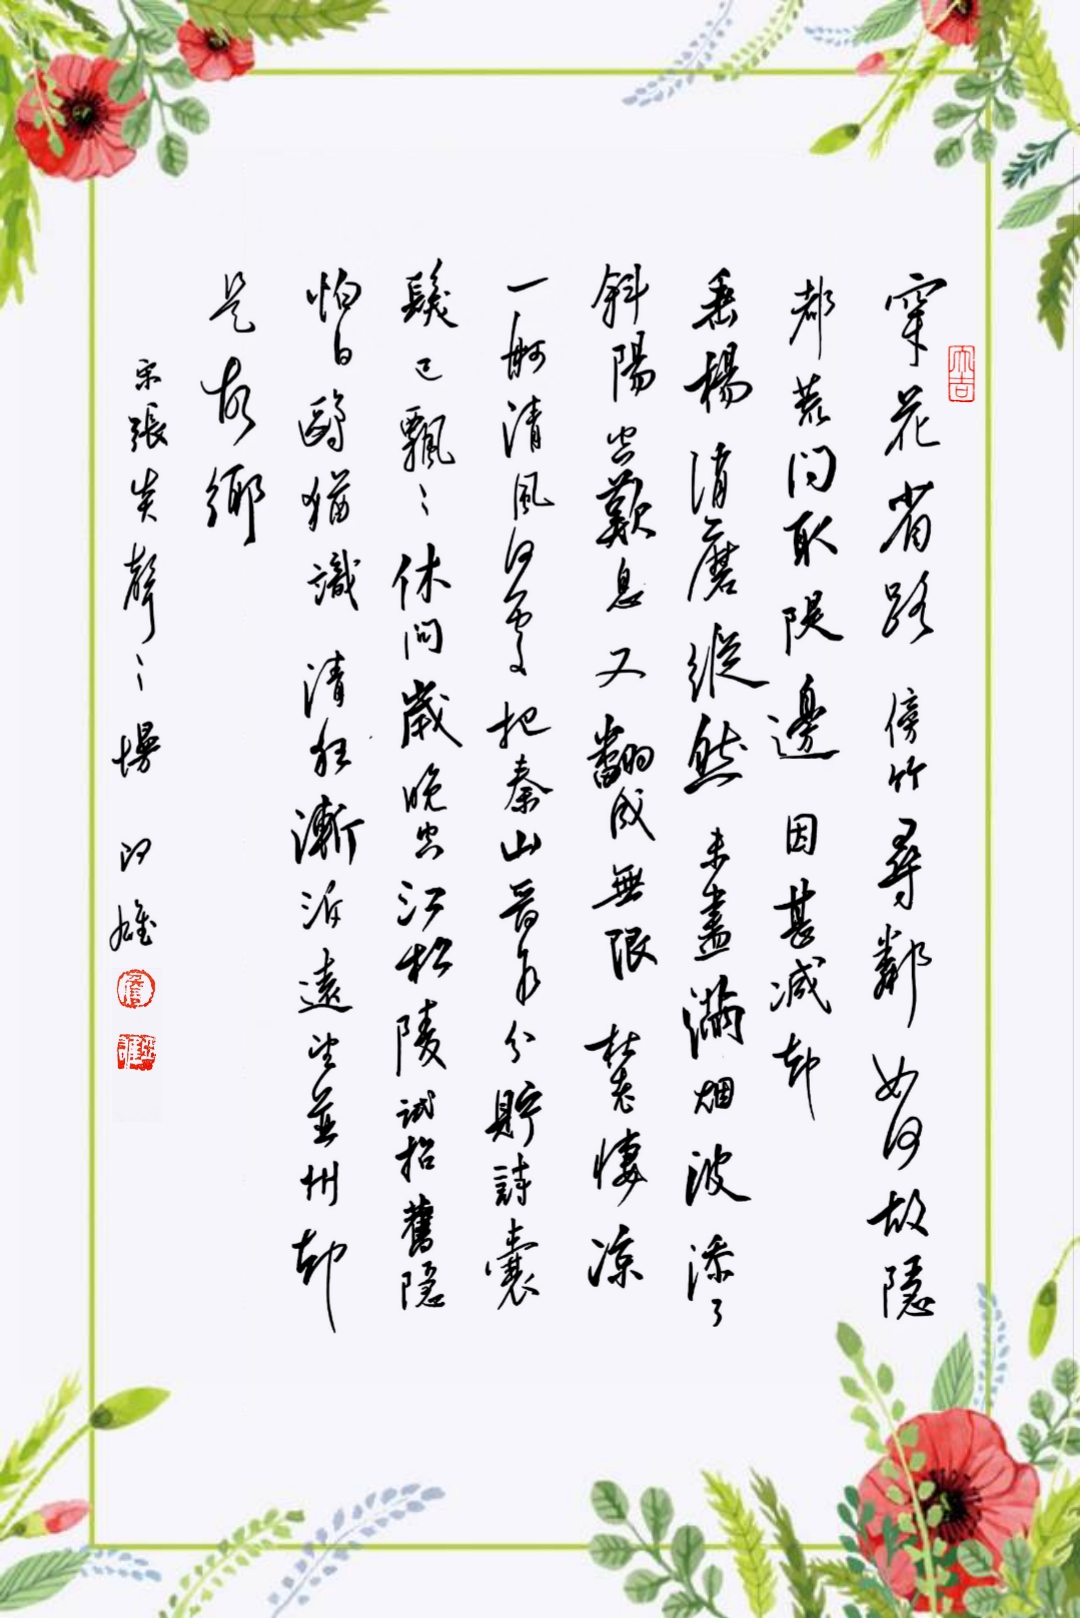 穿花省路傍竹尋鄰如何故隱
都荒问取堤邊因甚减却
垂楊消磨縱然未盡滿烟波添了
斜陽空歎息又翻成無限杜老悽凉
一舸清風何處把秦山晉水分貯詩囊
髮已飄飄休问歲晚空江松陵試招舊隱
怕白鷗猶識清狂漸泝遠望並州却
是故鄉
宋張炎聲聲慢
大吉